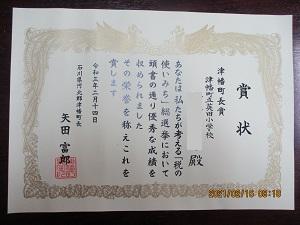 賞状
津幡町長賞
津幡町立英田小学校
殿
あなたは私たちが考える「税の
使いみち」総選挙において
頭書の通り優秀な成績を
収められました
その栄誉を称えこれを
賞します
令和三年二月十四日
石川県河北郡津幡町長
矢田富郎